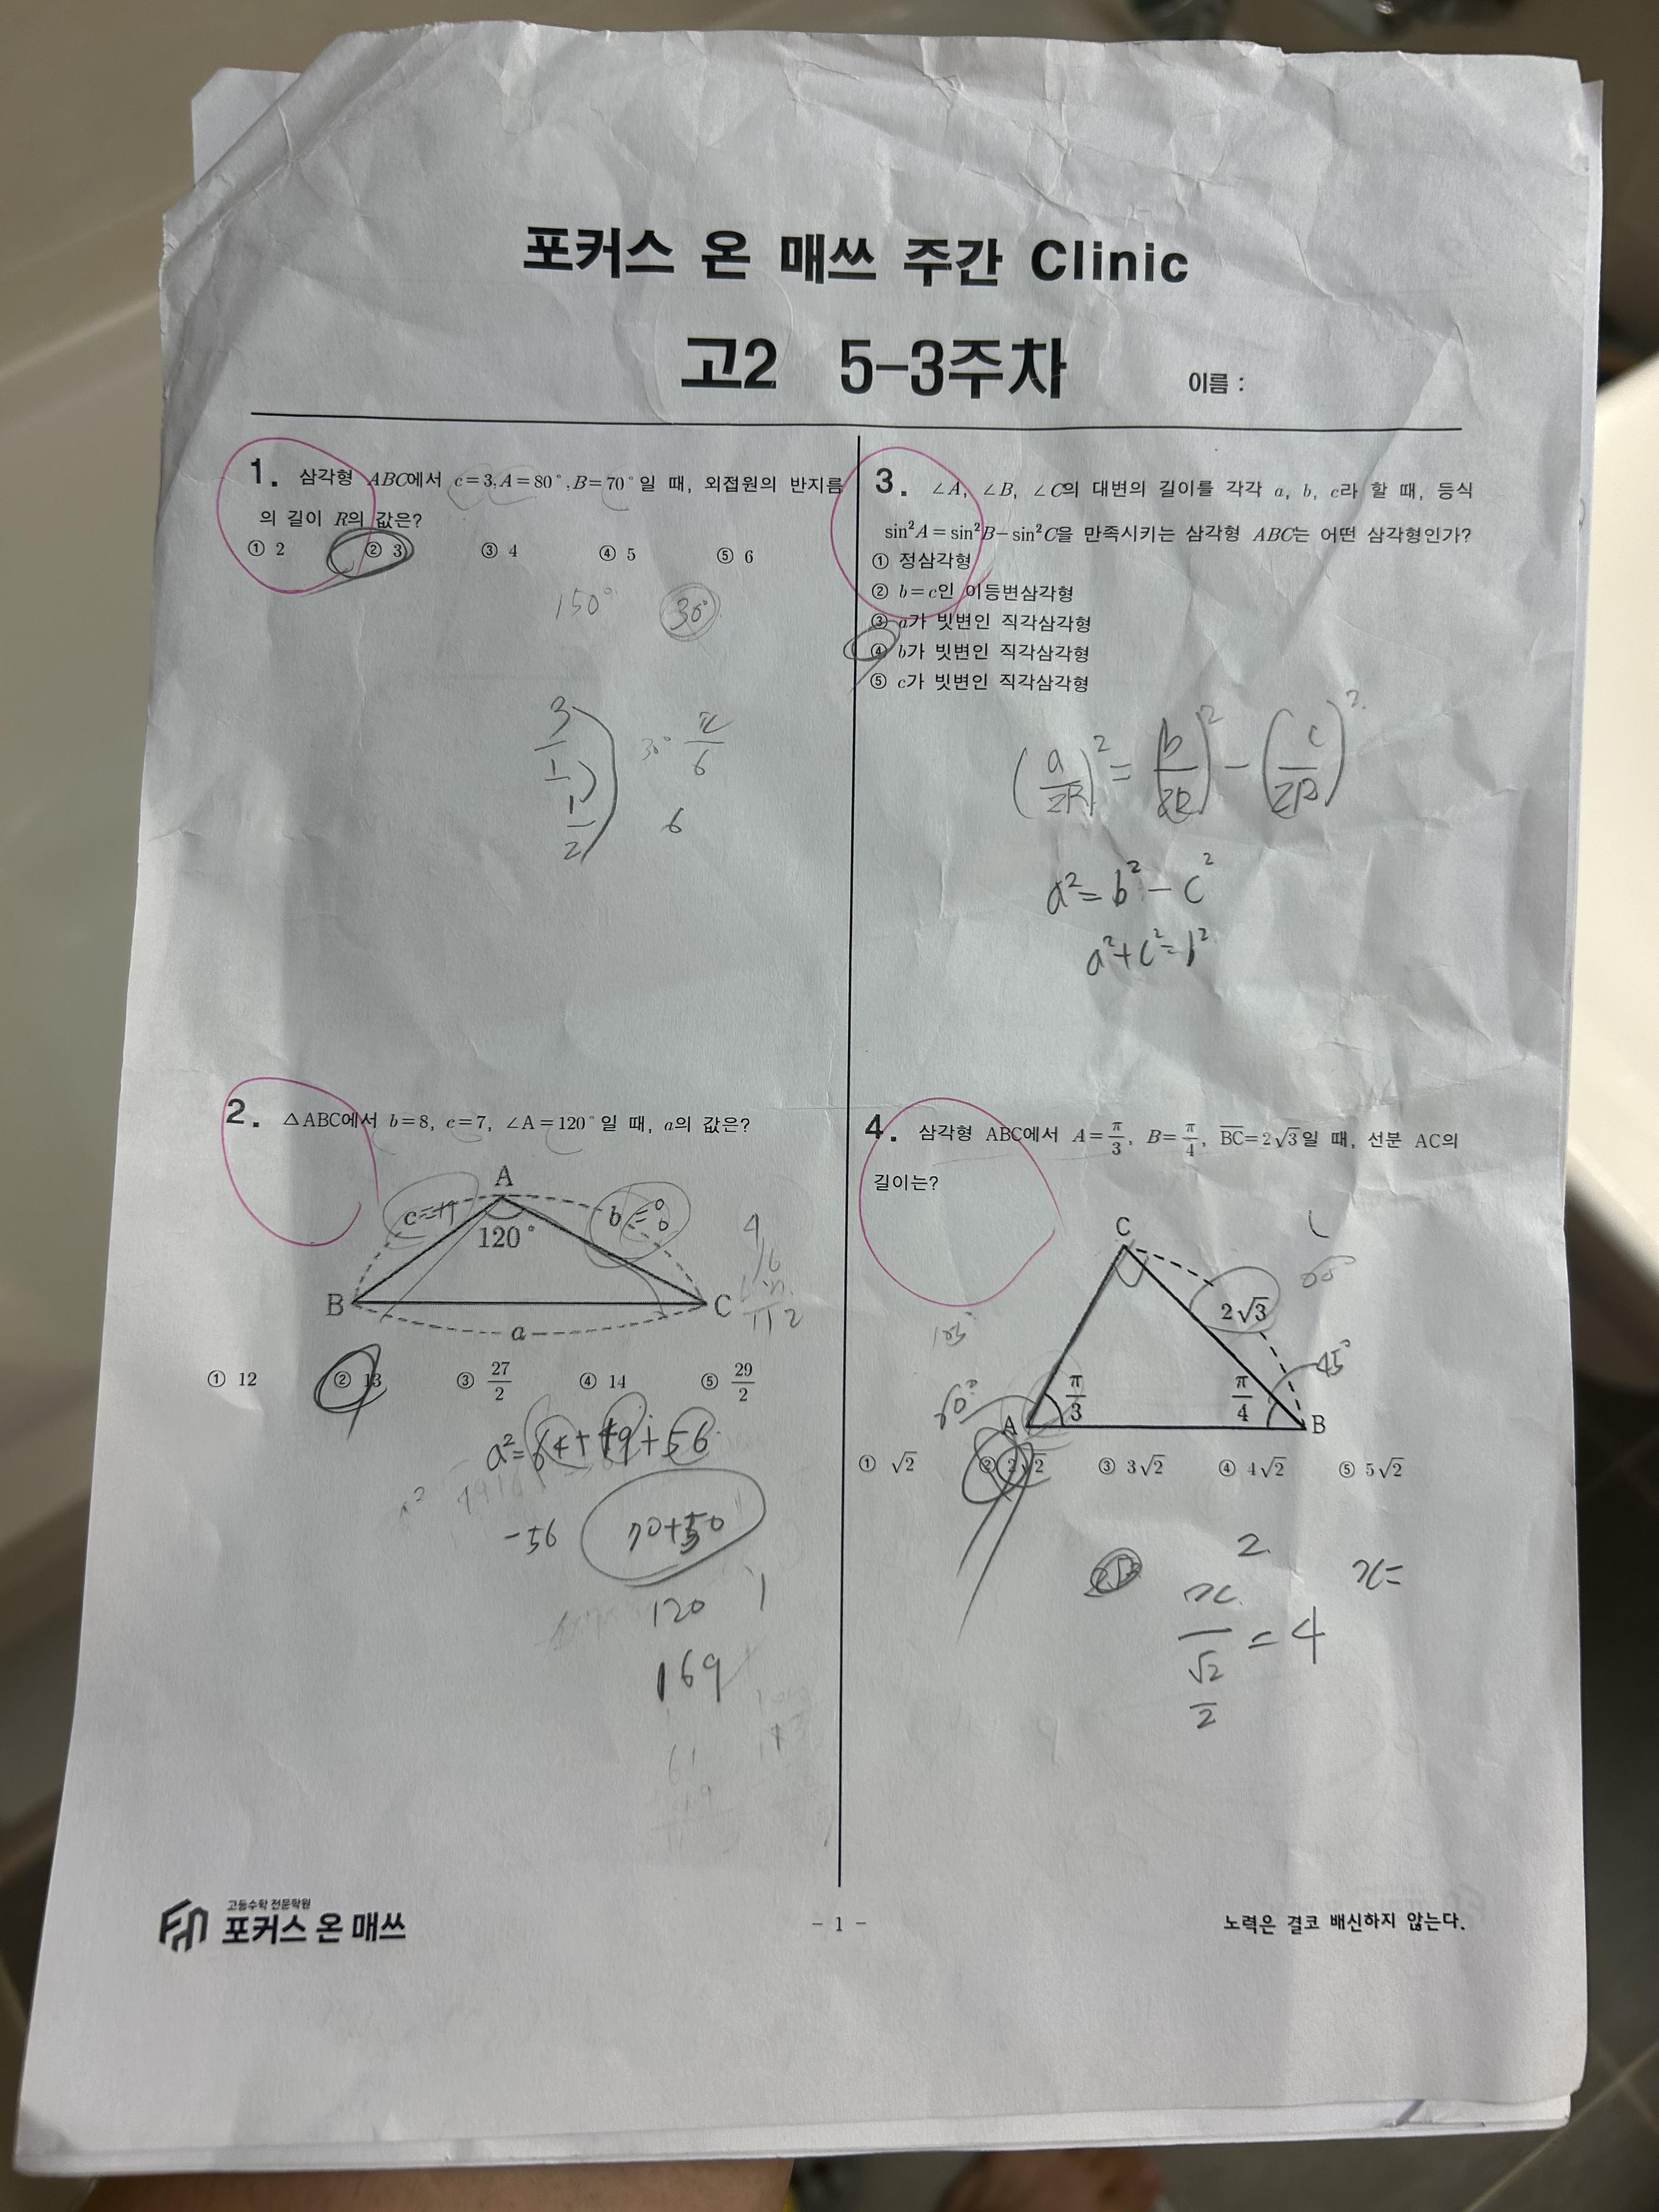 포커스 온 매쓰 주간 Clinic
고2 5-3주차
이름 :
1. 삼각형 ABC에서 c=3, A=80°, B=70°일 때, 외접원의 반지름
의 길이 R의 값은?
① 2 ② 3 ③ 4 ④ 5 ⑤ 6
150° 30°
3/(1/2) 30° π/6
6
2. △ABC에서 b=8, c=7, ∠A=120°일 때, a의 값은?
A
120°
B
C
a
① 12 ② 13 ③ 27/2 ④ 14 ⑤ 29/2
a²=64+49+56
-56 70+50
120
169
3. ∠A, ∠B, ∠C의 대변의 길이를 각각 a, b, c라 할 때, 등식
sin²A=sin²B-sin²C을 만족시키는 삼각형 ABC는 어떤 삼각형인가?
① 정삼각형
② b=c인 이등변삼각형
③ a가 빗변인 직각삼각형
④ b가 빗변인 직각삼각형
⑤ c가 빗변인 직각삼각형
(a/2R)²=(b/2R)²-(c/2R)²
a²=b²-c²
a²+c²=b²
4. 삼각형 ABC에서 A=π/3, B=π/4, BC=2√3일 때, 선분 AC의
길이는?
C
2√3
45°
60°
A
π/3
π/4
B
① √2 ② 2√2 ③ 3√2 ④ 4√2 ⑤ 5√2
2
x=
x/(√2/2)=4
고등수학 전문학원
포커스 온 매쓰
- 1 -
노력은 결코 배신하지 않는다.